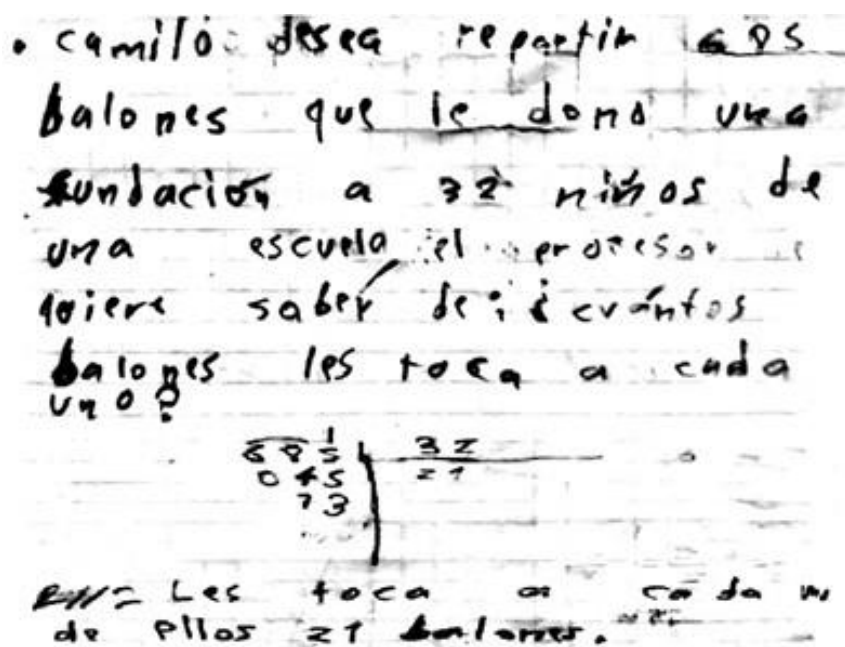 • camilo desea repartir 685
balones que le dono una
fundación a 32 niños de
una escuela el profesor
quiere saber de: ¿cuántos
balones les toca a cada
uno?
685 32
045 21
13
R//= Les toca a cada
de ellos 21 balones.